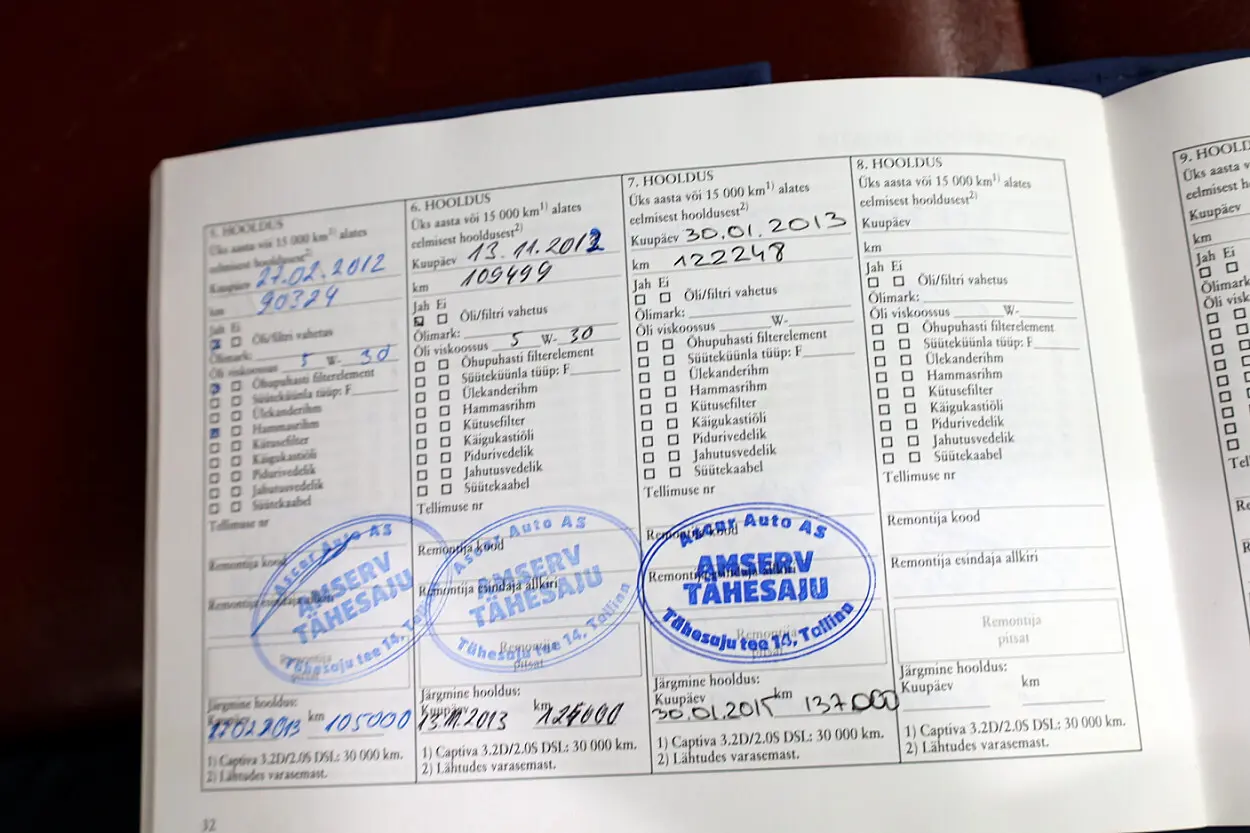 5. HOOLDUS
Üks aasta või 15 000 km1) alates
eelmisest hooldusest2)
Kuupäev 27.02.2012
km 90324
Jah Ei
Õli/filtri vahetus
Õlimark:
Õli viskoossus 5 W- 30
Õhupuhasti filterelement
Süüteküünla tüüp: F
Ülekanderihm
Hammasrihm
Kütusefilter
Käigukastiõli
Pidurivedelik
Jahutusvedelik
Süütekaabel
Tellimuse nr
Remontija kood
Remontija esindaja allkiri
Ascar Auto AS
AMSERV
TÄHESAJU
Tähesaju tee 14,
Remontija
pitsat
Järgmine hooldus:
Kuupäev km
27.02.2013 105000
1) Captiva 3.2D/2.0S DSL: 30 000 km.
2) Lähtudes varasemast.
32
6. HOOLDUS
Üks aasta või 15 000 km1) alates
eelmisest hooldusest2)
Kuupäev 13.11.2012
km 109499
Jah Ei
Õli/filtri vahetus
Õlimark:
Õli viskoossus 5 W- 30
Õhupuhasti filterelement
Süüteküünla tüüp: F
Ülekanderihm
Hammasrihm
Kütusefilter
Käigukastiõli
Pidurivedelik
Jahutusvedelik
Süütekaabel
Tellimuse nr
Remontija kood
Remontija esindaja allkiri
Ascar Auto AS
AMSERV
TÄHESAJU
Tähesaju tee 14, Tallinn
Remontija
pitsat
Järgmine hooldus:
Kuupäev km
13.11.2013 124000
1) Captiva 3.2D/2.0S DSL: 30 000 km.
2) Lähtudes varasemast.
7. HOOLDUS
Üks aasta või 15 000 km1) alates
eelmisest hooldusest2)
Kuupäev 30.01.2013
km 122248
Jah Ei
Õli/filtri vahetus
Õlimark:
Õli viskoossus W-
Õhupuhasti filterelement
Süüteküünla tüüp: F
Ülekanderihm
Hammasrihm
Kütusefilter
Käigukastiõli
Pidurivedelik
Jahutusvedelik
Süütekaabel
Tellimuse nr
Remontija kood
Remontija esindaja allkiri
Ascar Auto AS
AMSERV
TÄHESAJU
Tähesaju tee 14, Tallinn
Remontija
pitsat
Järgmine hooldus:
Kuupäev km
30.01.2015 137000
1) Captiva 3.2D/2.0S DSL: 30 000 km.
2) Lähtudes varasemast.
8. HOOLDUS
Üks aasta või 15 000 km1) alates
eelmisest hooldusest2)
Kuupäev
km
Jah Ei
Õli/filtri vahetus
Õlimark:
Õli viskoossus W-
Õhupuhasti filterelement
Süüteküünla tüüp: F
Ülekanderihm
Hammasrihm
Kütusefilter
Käigukastiõli
Pidurivedelik
Jahutusvedelik
Süütekaabel
Tellimuse nr
Remontija kood
Remontija esindaja allkiri
Remontija
pitsat
Järgmine hooldus:
Kuupäev km
1) Captiva 3.2D/2.0S DSL: 30 000 km.
2) Lähtudes varasemast.
9. HOOLD
Üks aasta v
eelmisest h
Kuupäev
km
Jah Ei
Õlimark:
Õli vis
Tel
R